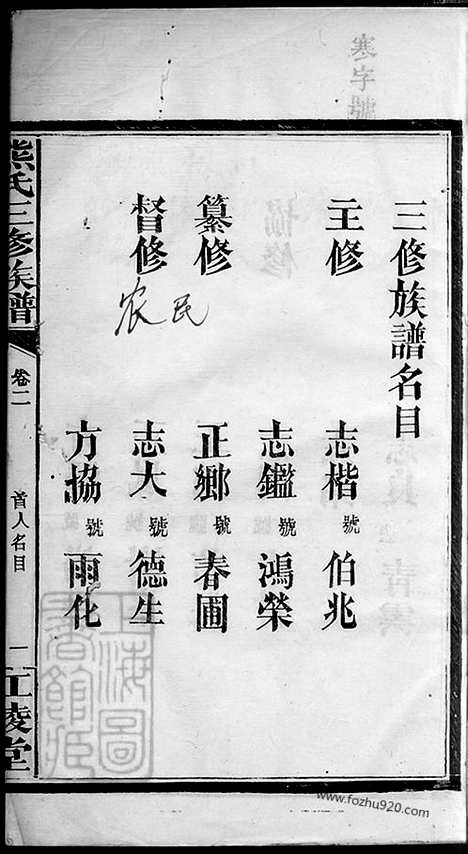 寒字號
三修族譜名目
主修
志楷 號 伯兆
志鑑 號 鴻榮
纂修
正鄉 號 春圃
督修
农民
志大 號 德生
方協 號 雨化
熊氏三修族譜
卷二
首人名目
一
江陵堂
上海圖書館藏
www.fozhu920.com